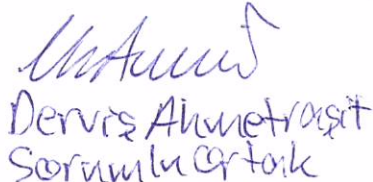 Derviş Ahmetraşit
Sorumlu Ortak